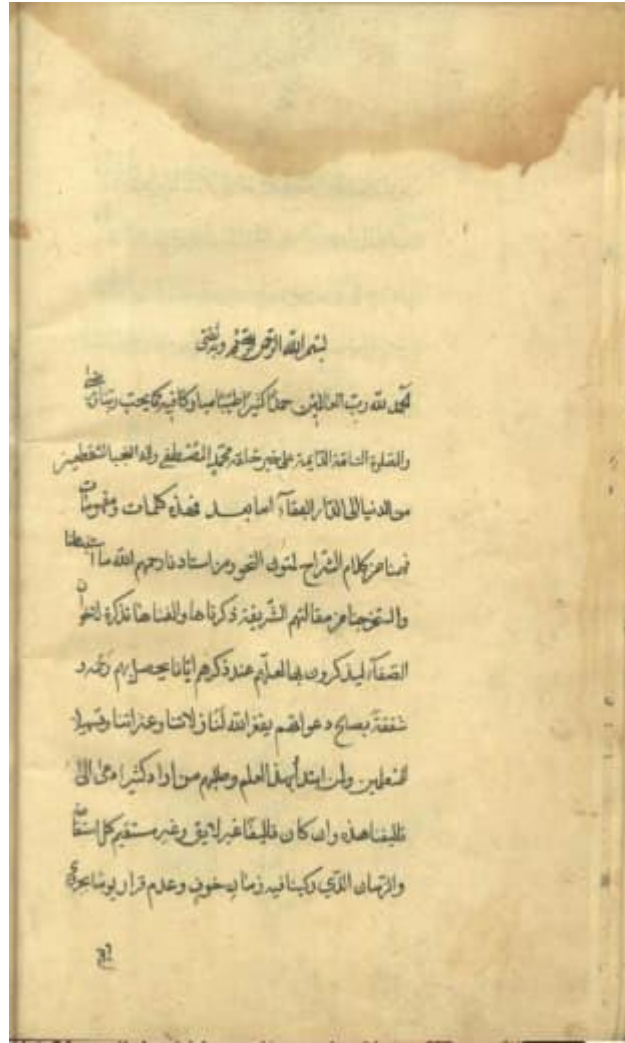 بسم الله الرحمن الرحيم وبه ثقتي
الحمد لله رب العالمين حمدا كثيرا طيبا مباركا فيه كما يحب ربنا
والصلوة التامة الدايمة على خير خلقه محمد المصطفى واله
من الدنيا الى الدار البقاء اما بعد فهذه كلمات ومفهومات
فهمنا من كلام الشراح لمتون النحو ومن استادنا رحمهم الله ما استنبطنا
واستخرجنا من مقالتهم الشريفة ذكرناها والفناها تذكرة لاخوان
الصفاء ليذكرون بها لعلهم عند ذكرهم ايانا يحصل بهم رقة و
شفقة بصالح دعواهم يغفر الله لنا زلاتنا وعثراتنا وتسهيلا
للمتعلمين ولمن ابتدا بهذا العلم ومنهم من اراد كثيرا
تاليفنا هذه وان كان تاليفا غير لايق وغير مستقيم كل
والزمان الذي ركبنا فيه زمان خوف وعدم قرار يوما